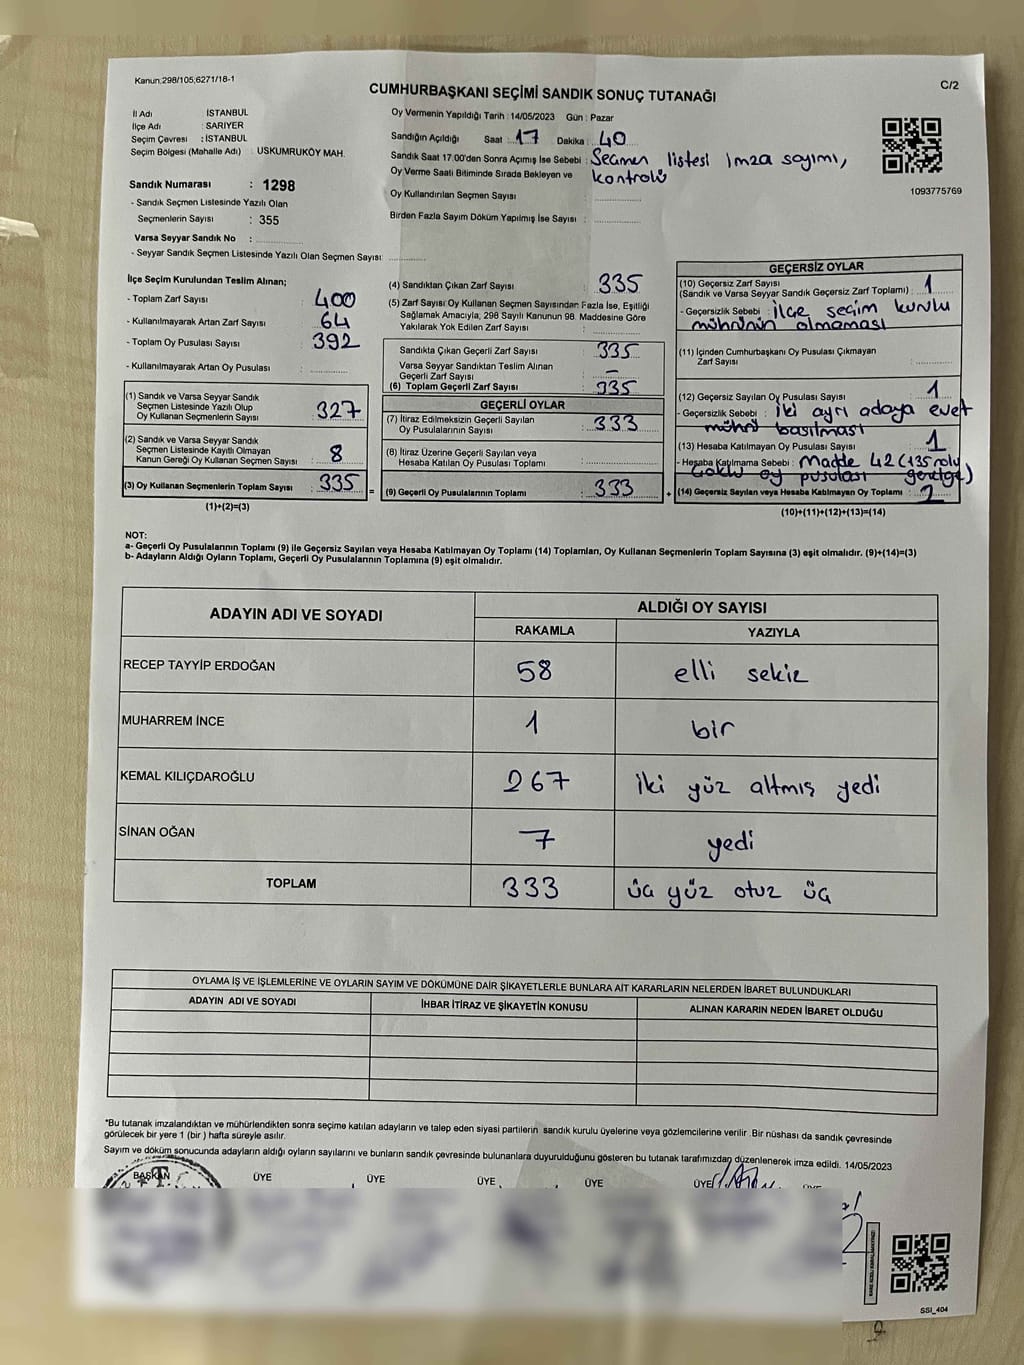 Kanun:298/105;6271/18-1
C/2
CUMHURBAŞKANI SEÇİMİ SANDIK SONUÇ TUTANAĞI
İl Adı İSTANBUL
İlçe Adı : SARIYER
Seçim Çevresi : İSTANBUL
Seçim Bölgesi (Mahalle Adı) : USKUMRUKÖY MAH.
Sandık Numarası : 1298
- Sandık Seçmen Listesinde Yazılı Olan
Seçmenlerin Sayısı : 355
Varsa Seyyar Sandık No :
- Seyyar Sandık Seçmen Listesinde Yazılı Olan Seçmen Sayısı:
Oy Vermenin Yapıldığı Tarih : 14/05/2023 Gün : Pazar
Sandığın Açıldığı Saat : 17 Dakika : 40
Sandık Saat 17.00'den Sonra Açımış İse Sebebi : Seçmen listesi imza sayımı,
Oy Verme Saati Bitiminde Sırada Bekleyen ve kontrolü
Oy Kullandırılan Seçmen Sayısı :
Birden Fazla Sayım Döküm Yapılmış İse Sayısı :
1093775769
İlçe Seçim Kurulundan Teslim Alınan;
- Toplam Zarf Sayısı : 400
- Kullanılmayarak Artan Zarf Sayısı : 64
- Toplam Oy Pusulası Sayısı : 392
- Kullanılmayarak Artan Oy Pusulası :
(1) Sandık ve Varsa Seyyar Sandık
Seçmen Listesinde Yazılı Olup
Oy Kullanan Seçmenlerin Sayısı : 327
(2) Sandık ve Varsa Seyyar Sandık
Seçmen Listesinde Kayıtlı Olmayan
Kanun Gereği Oy Kullanan Seçmen Sayısı : 8
(3) Oy Kullanan Seçmenlerin Toplam Sayısı : 335 =
(1)+(2)=(3)
(4) Sandıktan Çıkan Zarf Sayısı : 335
(5) Zarf Sayısı Oy Kullanan Seçmen Sayısından Fazla İse, Eşitliği
Sağlamak Amacıyla, 298 Sayılı Kanunun 98. Maddesine Göre
Yakılarak Yok Edilen Zarf Sayısı :
Sandıkta Çıkan Geçerli Zarf Sayısı : 335
Varsa Seyyar Sandıktan Teslim Alınan
Geçerli Zarf Sayısı : –
(6) Toplam Geçerli Zarf Sayısı : 335
GEÇERLİ OYLAR
(7) İtiraz Edilmeksizin Geçerli Sayılan
Oy Pusulalarının Sayısı : 333
(8) İtiraz Üzerine Geçerli Sayılan veya
Hesaba Katılan Oy Pusulası Toplamı :
(9) Geçerli Oy Pusulalarının Toplamı : 333 +
GEÇERSİZ OYLAR
(10) Geçersiz Zarf Sayısı
(Sandık ve Varsa Seyyar Sandık Geçersiz Zarf Toplamı) : 1
- Geçersizlik Sebebi : İlçe seçim kurulu
mührünün olmaması
(11) İçinden Cumhurbaşkanı Oy Pusulası Çıkmayan
Zarf Sayısı :
(12) Geçersiz Sayılan Oy Pusulası Sayısı : 1
- Geçersizlik Sebebi : İki ayrı adaya evet
mührü basılması
(13) Hesaba Katılmayan Oy Pusulası Sayısı : 1
- Hesaba Katılmama Sebebi : Madde 42 (135 nolu
Çoklu oy pusulası genelge)
(14) Geçersiz Sayılan veya Hesaba Katılmayan Oy Toplamı : 2
(10)+(11)+(12)+(13)=(14)
NOT:
a- Geçerli Oy Pusulalarının Toplamı (9) ile Geçersiz Sayılan veya Hesaba Katılmayan Oy Toplamı (14) Toplamları, Oy Kullanan Seçmenlerin Toplam Sayısına (3) eşit olmalıdır. (9)+(14)=(3)
b- Adayların Aldığı Oyların Toplamı, Geçerli Oy Pusulalarının Toplamına (9) eşit olmalıdır.
ADAYIN ADI VE SOYADI
ALDIĞI OY SAYISI
RAKAMLA YAZIYLA
RECEP TAYYİP ERDOĞAN 58 elli sekiz
MUHARREM İNCE 1 bir
KEMAL KILIÇDAROĞLU 267 iki yüz altmış yedi
SİNAN OĞAN 7 yedi
TOPLAM 333 üç yüz otuz üç
OYLAMA İŞ VE İŞLEMLERİNE VE OYLARIN SAYIM VE DÖKÜMÜNE DAİR ŞİKAYETLERLE BUNLARA AİT KARARLARIN NELERDEN İBARET BULUNDUKLARI
ADAYIN ADI VE SOYADI İHBAR İTİRAZ VE ŞİKAYETİN KONUSU ALINAN KARARIN NEDEN İBARET OLDUĞU
*Bu tutanak imzalandıktan ve mühürlendikten sonra seçime katılan adayların ve talep eden siyasi partilerin sandık kurulu üyelerine veya gözlemcilerine verilir. Bir nüshası da sandık çevresinde
görülecek bir yere 1 (bir ) hafta süreyle asılır.
Sayım ve döküm sonucunda adayların aldığı oyların sayılarını ve bunların sandık çevresinde bulunanlara duyurulduğunu gösteren bu tutanak tarafımızdan düzenlenerek imza edildi. 14/05/2023
BAŞKAN ÜYE ÜYE ÜYE ÜYE ÜYE ÜYE
SSI_404